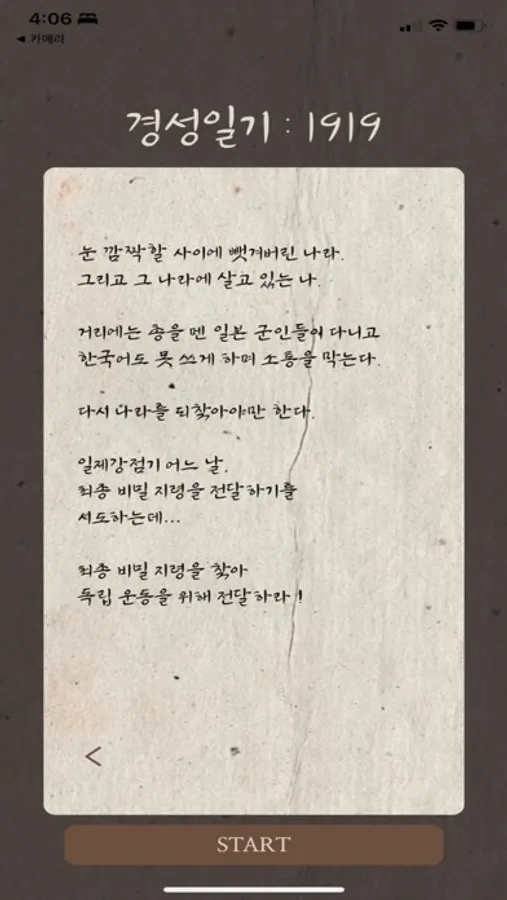 4:06
◀ 카메라
경성일기 : 1919
눈 깜짝할 사이에 뺏겨버린 나라.
그리고 그 나라에 살고 있는 나.
거리에는 총을 멘 일본 군인들이 다니고
한국어도 못 쓰게 하며 소통을 막는다.
다시 나라를 되찾아야만 한다.
일제강점기 어느 날,
최종 비밀 지령을 전달하기를
시도하는데...
최종 비밀 지령을 찾아
독립 운동을 위해 전달하라!
<
START